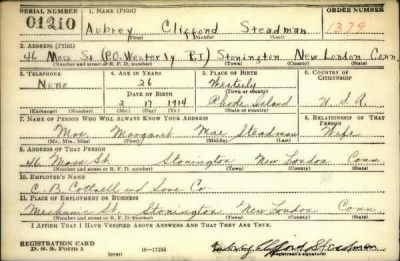 SERIAL NUMBER 1. NAME (Print) ORDER NUMBER
01210 Aubrey Clifford Steadman 1379
(First) (Middle) (Last)
2. ADDRESS (Print)
46 Moss St (P.O. Westerly R.I) Stonington New London Conn.
(Number and street or R. F. D. number) (Town) (County) (State)
3. TELEPHONE 4. AGE IN YEARS 5. PLACE OF BIRTH 6. COUNTRY OF CITIZENSHIP
None 26 Westerly
DATE OF BIRTH (Town or county)
2 17 1914 Rhode Island U.S.A.
(Exchange) (Number) (Mo.) (Day) (Yr.) (State or country)
7. NAME OF PERSON WHO WILL ALWAYS KNOW YOUR ADDRESS 8. RELATIONSHIP OF THAT PERSON
Mrs. Margaret Mae Steadman Wife
(Mr., Mrs., Miss) (First) (Middle) (Last)
9. ADDRESS OF THAT PERSON
46 Moss St. Stonington New London Conn.
(Number and street or R. F. D. number) (Town) (County) (State)
10. EMPLOYER'S NAME
C. B. Cottrell and Sons Co.
11. PLACE OF EMPLOYMENT OR BUSINESS
Mechanic St. Stonington New London Conn.
(Number and street or R. F. D. number) (Town) (County) (State)
I AFFIRM THAT I HAVE VERIFIED ABOVE ANSWERS AND THAT THEY ARE TRUE.
REGISTRATION CARD
D. S. S. FORM 1 (over) Aubrey Clifford Steadman
(Registrant's signature)